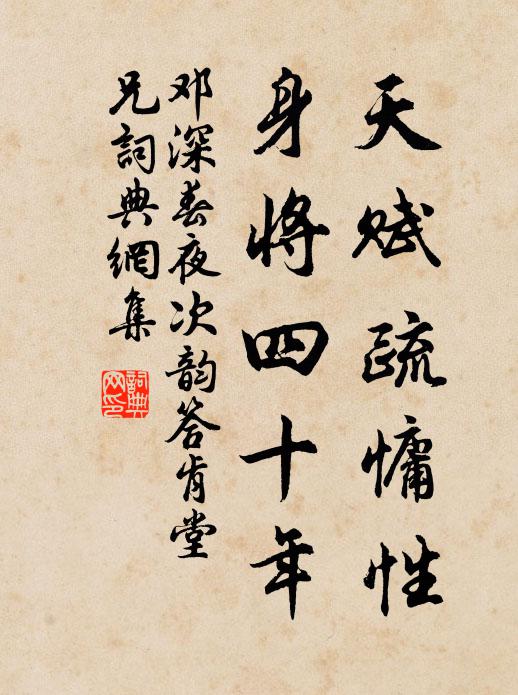 天赋疏慵性
身将四十年
邓深春夜次韵答肯堂
兄詞典網集
詞典
网印